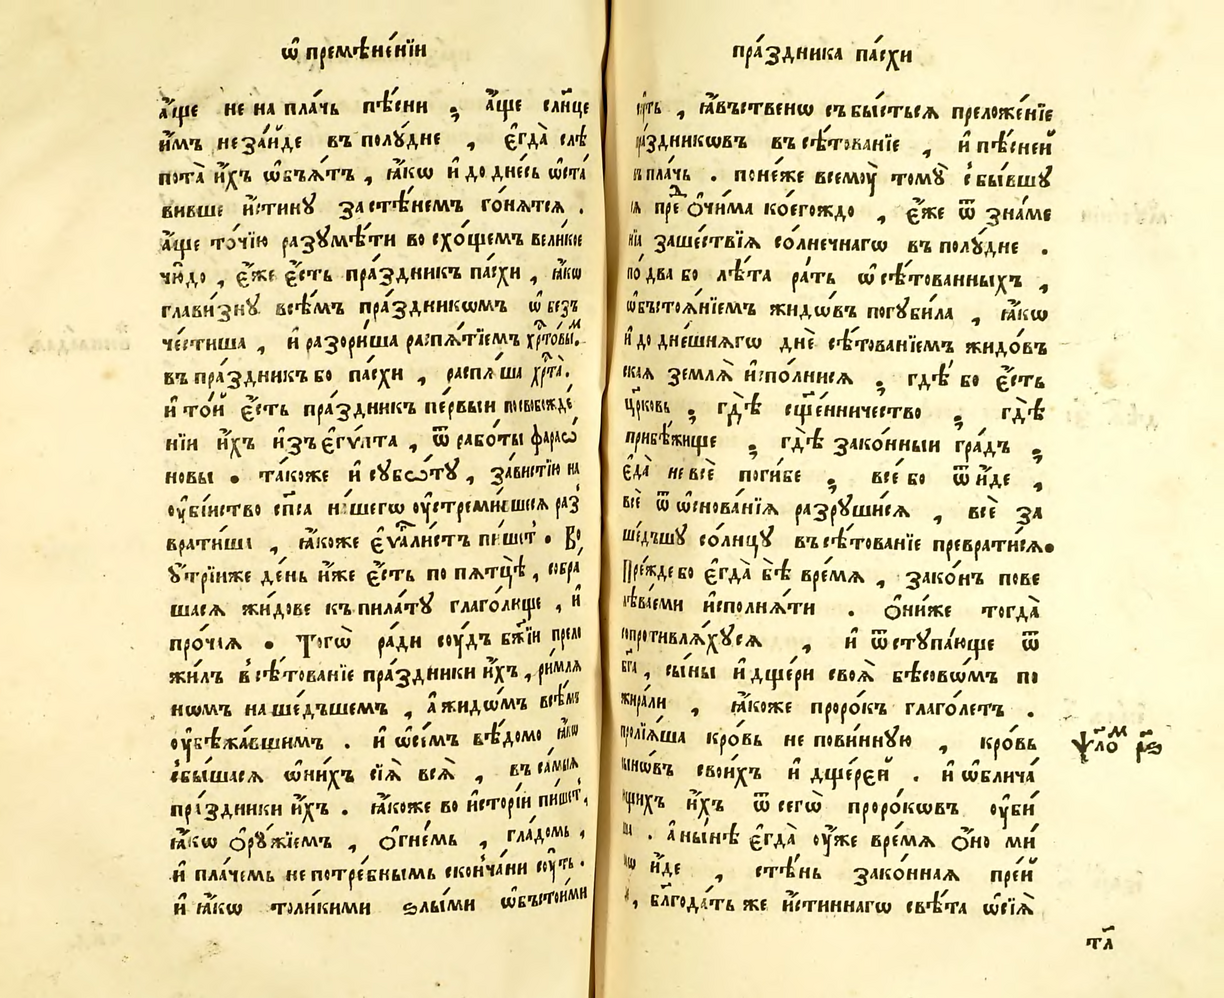 ѡ҆ премѣне́нїи
а҆́ще не на пла́чь пѣ́сни ; а҆́ще сл҃нце
и҆̀мъ не за́йде въ полу́дне , є҆гда̀ слѣ
пота̀ и҆́хъ ѡ҆бъѧ́тъ , ꙗ҆́кѡ и҆ до дне́сь ѡ҆ста́
вивше и҆́стину за стѣ́немъ го́нѧтсѧ .
а҆́ще то́чїю разумѣ́ти восхо́щемъ вели́кое
чю́до , є҆́же є҆́сть пра́здникъ па́схи , ꙗ҆́кѡ
главизну̀ всѣ́мъ пра́здникѡмъ ѡ҆безъ
че́стиша , и҆ разори́ша распѧ́тїемъ хрⷭ҇то́вы́м.
въ пра́здникъ бо па́схи , распѧ́ша хрⷭ҇та̀.
и҆ то́й є҆́сть пра́здникъ пе́рвыи посвобожде́
нїи и҆́хъ и҆зъ є҆гѵ́пта , ѿ рабо́ты фараѡ́
новы . та́коже и҆ субѡ́ту , за́вистїю на
ѹ҆бі́йство сп҃са на́шегѡ ѹ҆стреми́шесѧ раз
врати́ша , ꙗ҆́коже є҆ѵⷢ҇али́стъ пи́шет . Во
у҆́трїиже де́нь и҆́же є҆́сть по пѧтцѣ̀ , собра́
шасѧ жи́дове къ пила́ту глаго́лище , и҆
про́чїѧ . Тогѡ̀ ра́ди сꙋ́дъ бж҃їи прело
жи́лъ в сѣ́тованїе пра́здники и҆́хъ , ри́млѧ
нѡмъ наше́дъшемъ , а҆ жи́дѡмъ всѣ́мъ
ѹ҆бѣжа́вшимъ . и҆ ѡ҆се́мъ вѣ́домо ꙗ҆́кѡ
сбы́шасѧ ѡ҆ни́хъ сїѧ̀ всѧ̀ , въ са́мыѧ
пра́здники и҆́хъ . ꙗ҆́коже во и҆сто́рїи пи́шет ,
ꙗ҆́кѡ ѻ҆ру́жїемъ , ѻ҆гне́мь , гла́домь ,
и҆ пла́чемь не потре́бнымь сконча́ни сꙋ́ть .
и҆ ꙗ҆́кѡ толи́кими ѕлы́ми ѡ҆бъстои́ми
пра́здника па́схи
сꙋ́ть , ꙗ҆́въственѡ съ бы́стьсѧ преложе́нїе
пра́здникѡвъ въ сѣ́тованїе , и҆ пѣ́сней
въ пла́чь . поне́же всемꙋ̀ тому̀ сбы́вшу
сѧ преⷣ ѻ҆чи́ма коегождо , є҆́же ѿ зна́ме
нїѧ заше́ствїѧ со́лнечнагѡ въ полу́дне .
по два бо лѣ́та ра́ть ѡ҆сѣ́тованныхъ ,
ѡ҆бъстоѧ́нїемъ жидѡ́въ погуби́ла , ꙗ҆́кѡ
и҆ до дне́шнѧгѡ днѐ сѣ́тованїемъ жидо́въ
скаѧ землѧ̀ и҆спо́лнисѧ ; гдѣ́ бо є҆́сть
цр҃ковь ; гдѣ̀ сщ҃е́нничество ; гдѣ̀
прибѣ́жище ; гдѣ̀ зако́нныи гра́дъ ;
є҆да̀ не всѐ поги́бе ; все́ бо ѿи́де ,
всѐ ѿ ѡ҆снова́нїѧ разруши́сѧ , всѐ за
ше́дъшу со́лнцу въ сѣ́тованїе преврати́сѧ.
Пре́жде бо є҆гда̀ бѣ̀ вре́мѧ , зако́нъ пове
лѣва́еми и҆сполнѧ́ти . ѻ҆ни́же тогда̀
сопротивлѧ́хусѧ , и҆ ѿступа́юще ѿ
бг҃а , сы́ны и҆ дще́ри своѧ̀ бѣсовѡ́мъ по
жира́ли , ꙗ҆́коже проро́къ глаго́летъ .
пролїѧ́ша кро́вь не пови́нную , кро́вь
сынѡ́въ свои́хъ и҆ дще́рей . и҆ ѡ҆блича́
ющихъ и҆́хъ ѿ сегѡ̀ проро́кѡвъ ѹ҆би́
ша . а҆ ны́нѣ є҆гда̀ ѹ҆́же вре́мѧ ѻ҆́но ми
мѡ и҆́де , стѣ́нь зако́нная прей
де , блг҃ода́ть же и҆́стиннагѡ свѣ́та ѡ҆сїѧ̀
ѱало́м р҃ѕ
тѧ́